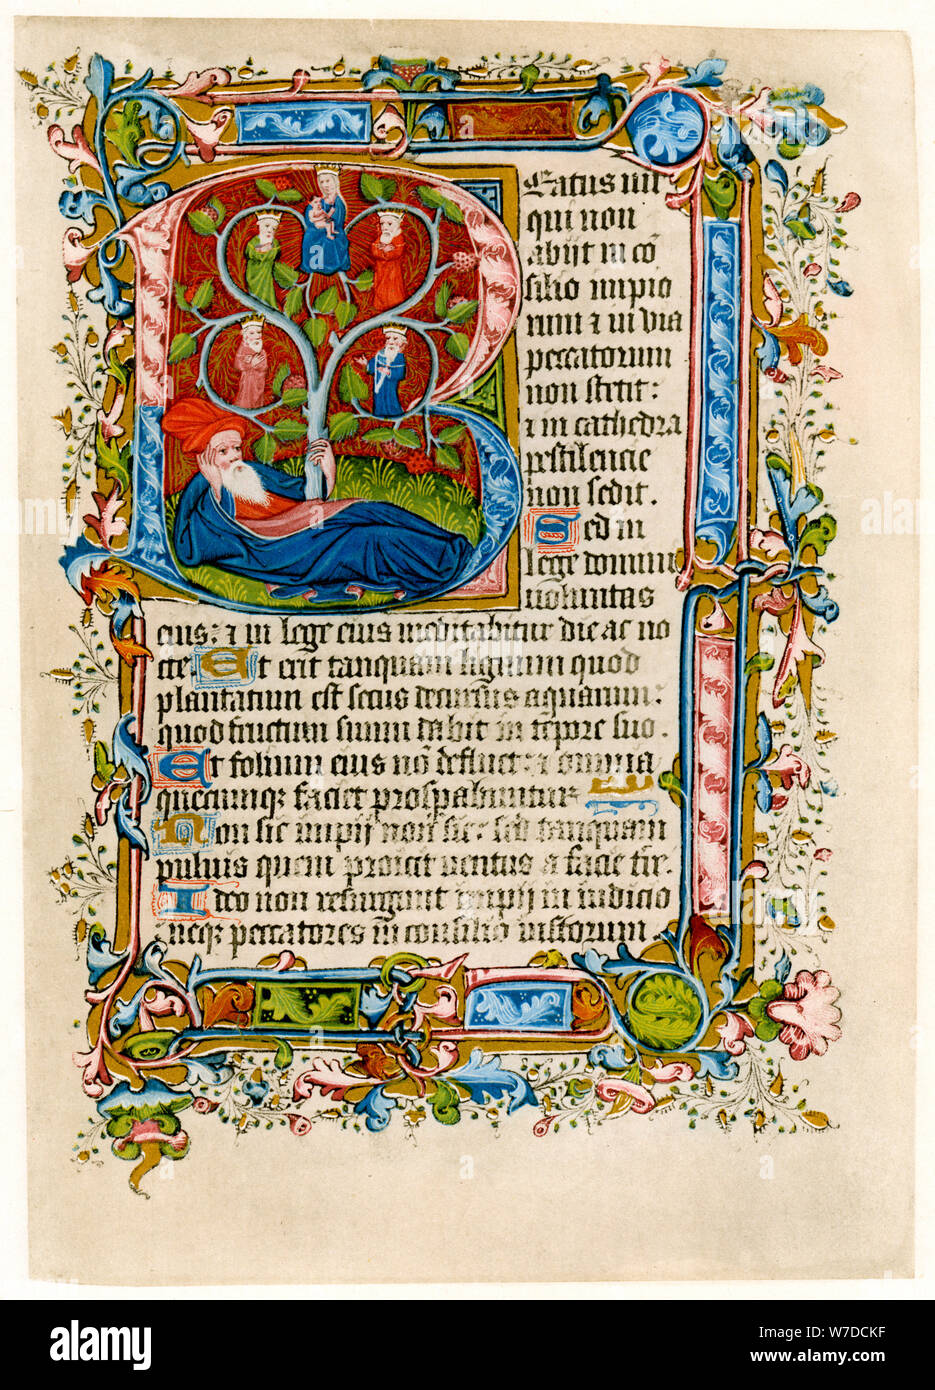 Beatus uir
qui non
abijt in cō
silio impio
rum ⁊ in via
peccatorum
non stetit:
⁊ in cathedra
pestilencie
non sedit.
Sed in
lege domini
uoluntas
eius: ⁊ in lege eius meditabitur die ac no
cte. Et erit tanquam lignum quod
plantatum est secus decursus aquarum:
quod fructum suum dabit in tēpore suo.
Et folium eius nō defluet: ⁊ omnia
quecumqꝫ faciet prosperabuntur
Non sic impij non sic: sed tanquam
puluis quem proicit uentus a facie tr̄e.
Ideo non resurgunt impij in iudicio
neqꝫ peccatores in consilio iustorum
alamy
Image ID: W7DCKF
www.alamy.com